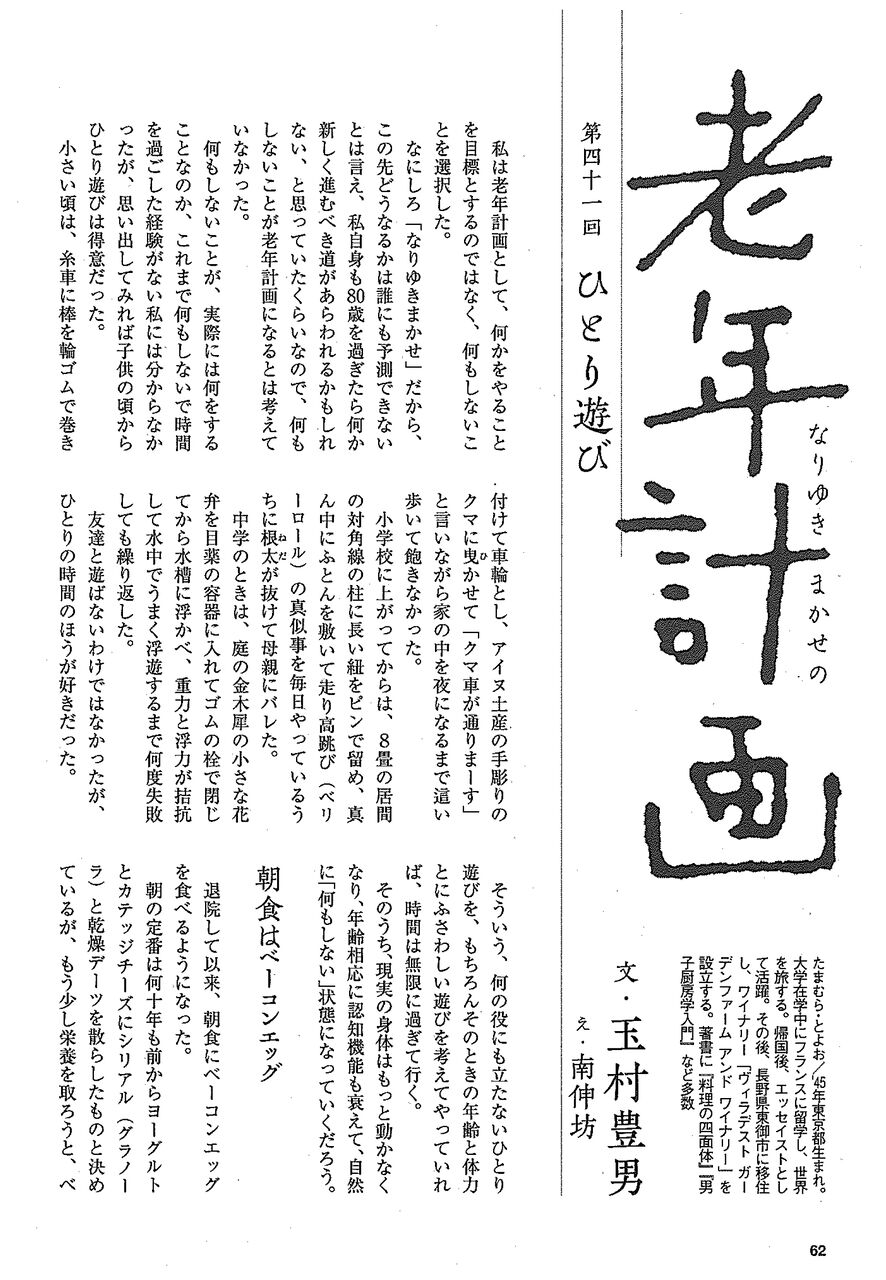 なりゆきまかせの
老年計画
第四十一回 ひとり遊び
文・玉村豊男
え・南伸坊
たまむら・とよお／'45年東京都生まれ。
大学在学中にフランスに留学し、世界
を旅する。帰国後、エッセイストとし
て活躍。その後、長野県東御市に移住
し、ワイナリー「ヴィラデスト ガー
デンファーム アンド ワイナリー」を
設立する。著書に『料理の四面体』『男
子厨房学入門』など多数
私は老年計画として、何かをやること
を目標とするのではなく、何もしないこ
とを選択した。
なにしろ「なりゆきまかせ」だから、
この先どうなるかは誰にも予測できない
とは言え、私自身も80歳を過ぎたら何か
新しく進むべき道があらわれるかもしれ
ない、と思っていたくらいなので、何も
しないことが老年計画になるとは考えて
いなかった。
何もしないことが、実際には何をする
ことなのか、これまで何もしないで時間
を過ごした経験がない私には分からなか
ったが、思い出してみれば子供の頃から
ひとり遊びは得意だった。
小さい頃は、糸車に棒を輪ゴムで巻き
付けて車輪とし、アイヌ土産の手彫りの
クマに曳かせて「クマ車が通りまーす」
と言いながら家の中を夜になるまで這い
歩いて飽きなかった。
小学校に上がってからは、８畳の居間
の対角線の柱に長い紐をピンで留め、真
ん中にふとんを敷いて走り高跳び（ベリ
ーロール）の真似事を毎日やっているう
ちに根太が抜けて母親にバレた。
中学のときは、庭の金木犀の小さな花
弁を目薬の容器に入れてゴムの栓で閉じ
てから水槽に浮かべ、重力と浮力が拮抗
して水中でうまく浮遊するまで何度失敗
しても繰り返した。
友達と遊ばないわけではなかったが、
ひとりの時間のほうが好きだった。
そういう、何の役にも立たないひとり
遊びを、もちろんそのときの年齢と体力
とにふさわしい遊びを考えてやっていれ
ば、時間は無限に過ぎて行く。
そのうち、現実の身体はもっと動かなく
なり、年齢相応に認知機能も衰えて、自然
に「何もしない」状態になっていくだろう。
朝食はベーコンエッグ
退院して以来、朝食にベーコンエッグ
を食べるようになった。
朝の定番は何十年も前からヨーグルト
とカテッジチーズにシリアル（グラノー
ラ）と乾燥デーツを散らしたものと決め
ているが、もう少し栄養を取ろうと、ベ
62